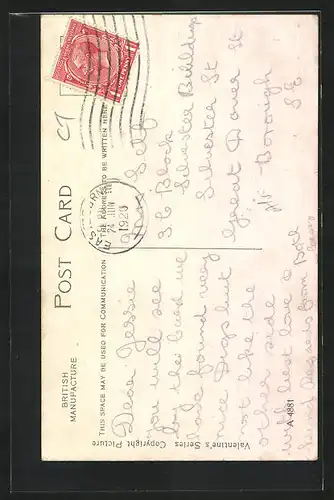 POST CARD
BRITISH
MANUFACTURE
THIS SPACE MAY BE USED FOR COMMUNICATION
THE ADDRESS TO BE WRITTEN HERE
Valentine's Series Copyright Picture
A 4881
Dear Jessie
you will see
by the card we
have found very
nice Digs but
not like the
other side
with best love &
from Both
Self
36 Block
Silvester Buildings
Silvester St
Great Dover St
Borough
SE
24 JUN
1926
ONE PENNY